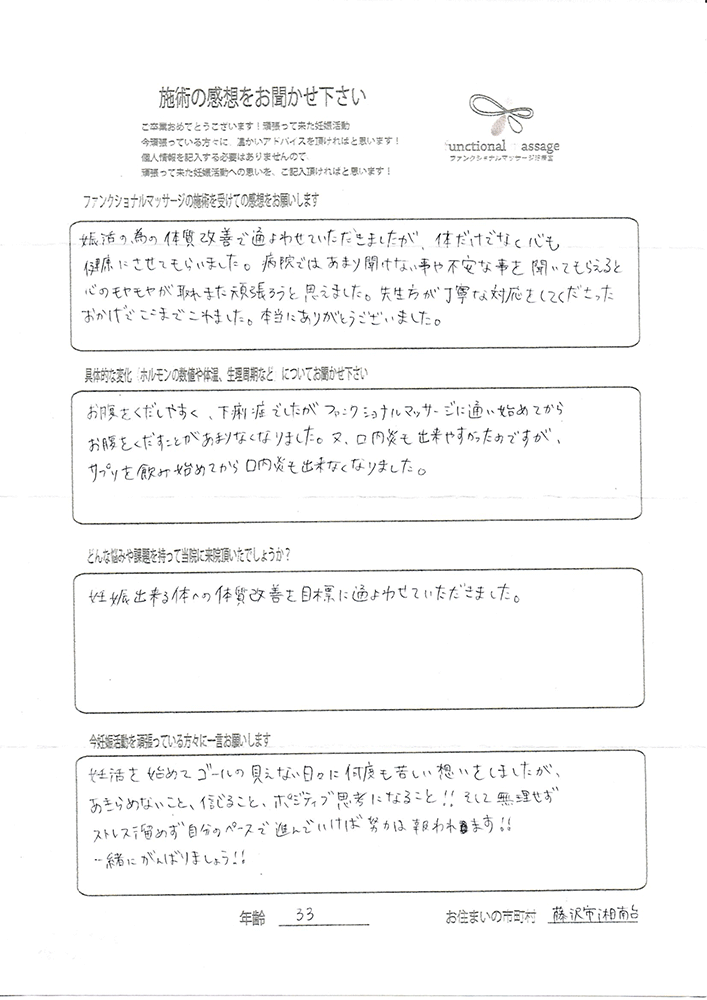 施術の感想をお聞かせ下さい
ご卒業おめでとうございます！頑張って来た妊娠活動
今頑張っている方々に、温かいアドバイスを頂ければと思います！
個人情報を記入する必要はありませんので、
頑張って来た妊娠活動への思いを、ご記入頂ければと思います！
functional assage
ファンクショナルマッサージ治療室
ファンクショナルマッサージの施術を受けての感想をお願いします
娠活の為の体質改善で通よわせていただきましたが、体だけでなく心も
健康にさせてもらいました。病院ではあまり聞けない事や不安な事を聞いてもらえると
心のモヤモヤが取れまた頑張ろうと思えました。先生方が丁寧な対応をしてくださった
おかげでここまでこれました。本当にありがとうございました。
具体的な変化（ホルモンの数値や体温、生理周期など）についてお聞かせ下さい
お腹をくだしやすく、下痢症でしたがファンクショナルマッサージに通い始めてから
お腹をくだすことがあまりなくなりました。又、口内炎も出来やすかったのですが、
サプリを飲み始めてから口内炎も出来なくなりました。
どんな悩みや課題を持って当院に来院頂いたでしょうか？
妊娠出来る体への体質改善を目標に通よわせていただきました。
今妊娠活動を頑張っている方々に一言お願いします
妊活を始めてゴールの見えない日々に何度も苦しい想いをしましたが、
あきらめないこと、信じること、ポジティブ思考になること!! そして無理せず
ストレス溜めず自分のペースで進んでいけば努力は報われます!!
一緒にがんばりましょう!!
年齢 33 お住まいの市町村 藤沢市湘南台